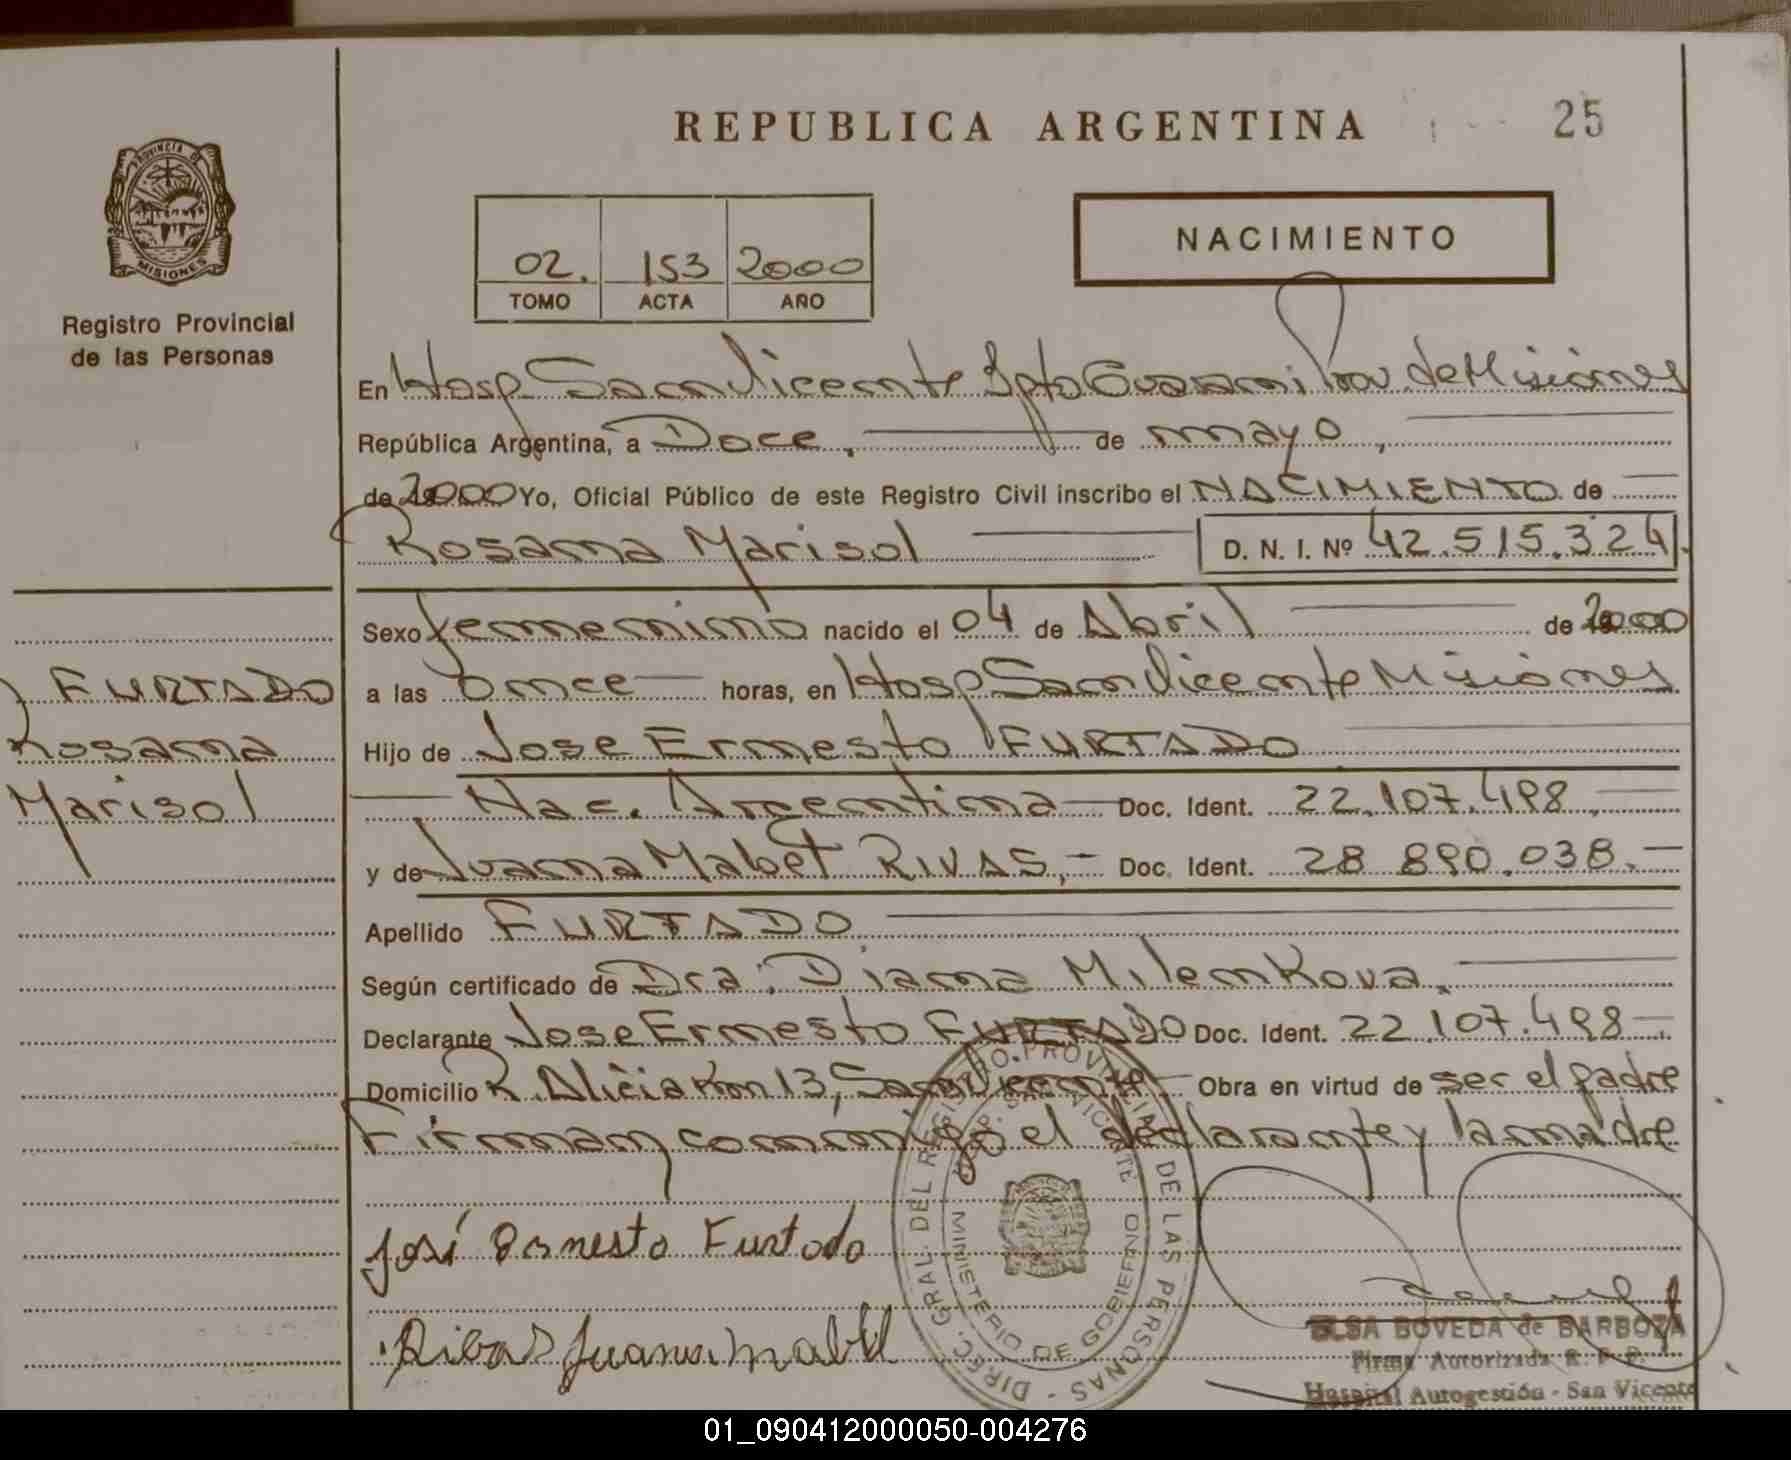 REPUBLICA ARGENTINA
25
PROVINCIA DE
MISIONES
Registro Provincial
de las Personas
NACIMIENTO
02. 153 2000
TOMO ACTA AÑO
En Hosp San Vicente Dpto Guarani Prov de Misiones
República Argentina, a Doce, de mayo,
de 2000 Yo, Oficial Público de este Registro Civil inscribo el NACIMIENTO de
Rosana Marisol D. N. I. Nº 42.515.324.
Sexo femenino nacido el 04 de Abril de 2000
a las once horas, en Hosp San Vicente Misiones
Hijo de Jose Ernesto FURTADO
Nac. Argentina Doc. Ident. 22.107.498,
y de Juana Mabel RIVAS, Doc. Ident. 28 890.038.
Apellido FURTADO
Según certificado de Dra: Diana Milenkova.
Declarante Jose Ernesto FURTADO Doc. Ident. 22.107.498
Domicilio R. Alicia Km 13, San Vicente Obra en virtud de ser el padre
Firman conmigo el declarante y la madre
FURTADO
Rosana
Marisol
José Ernesto Furtado
Ribas Juana Mabel
DIREC. GRAL. DEL REGISTRO PROVINCIAL DE LAS PERSONAS
HOSP. SAN VICENTE
MINISTERIO DE GOBIERNO
ELSA BOVEDA de BARBOZA
Firma Autorizada R. P. P.
Hospital Autogestión - San Vicente
01_090412000050-004276